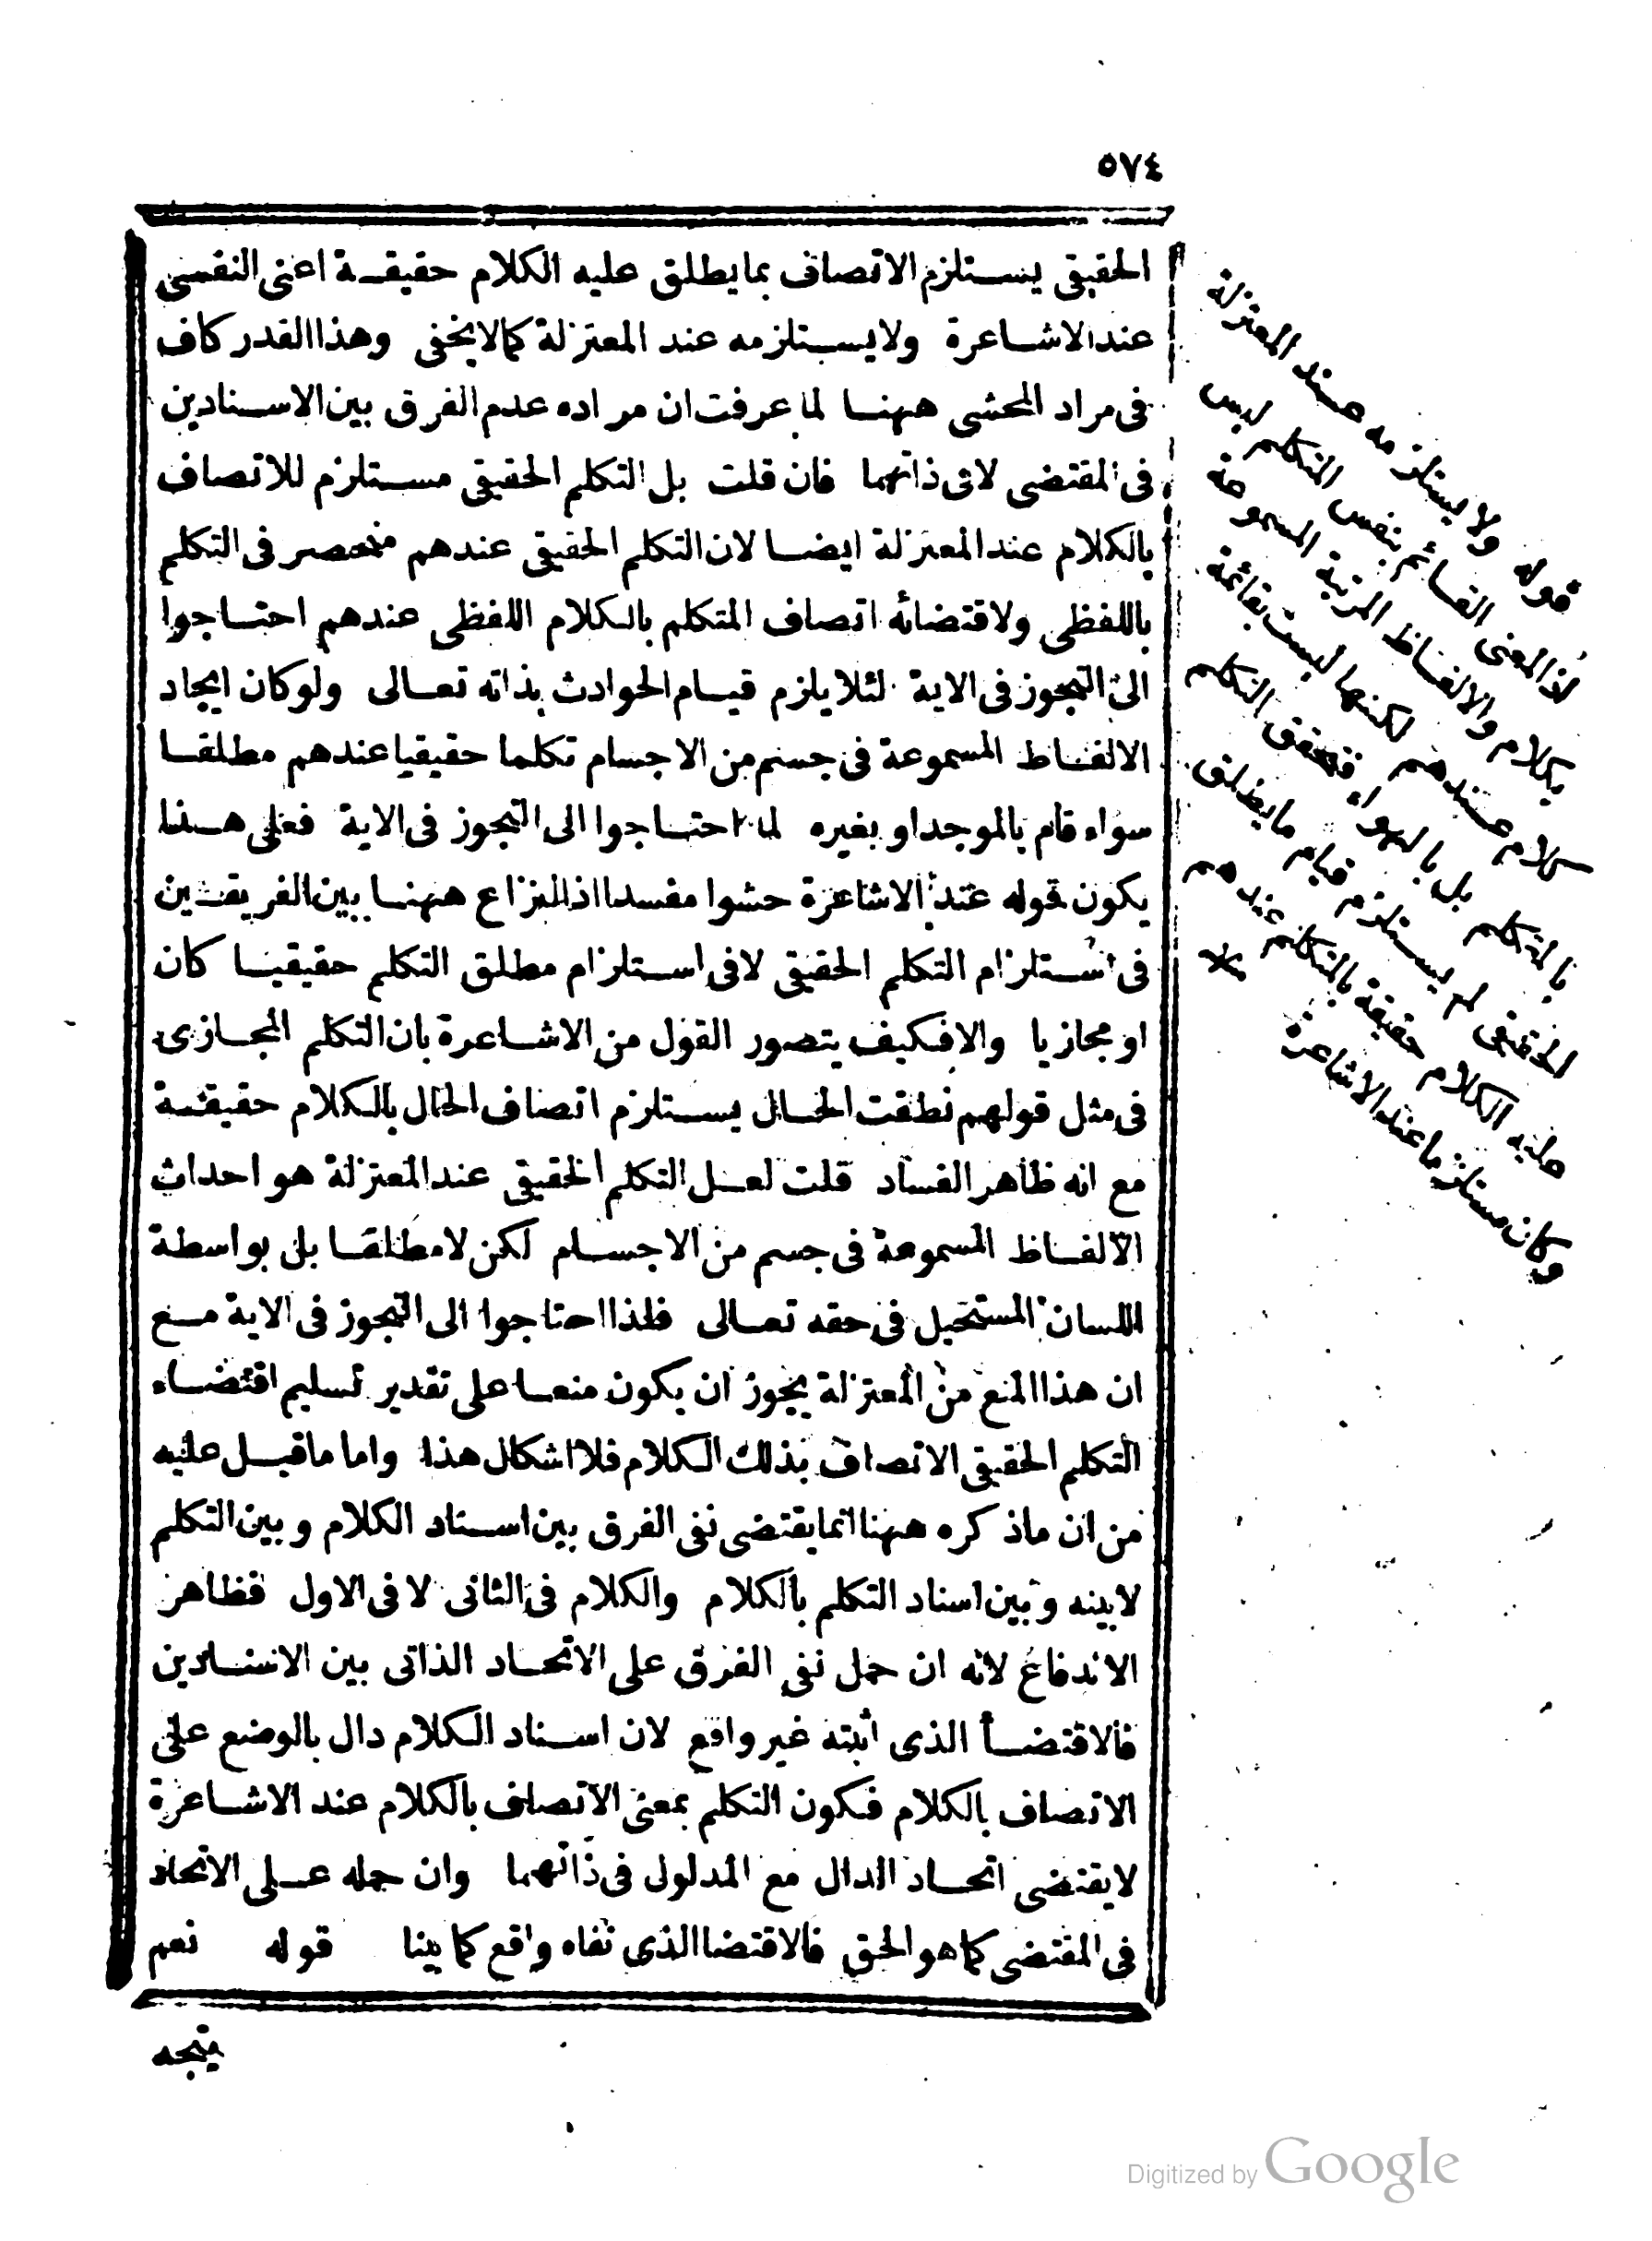 ٥٧٤
الحقيقى يستلزم الاتصاف بما يطلق عليه الكلام حقيقة اعنى النفسى
عند الاشاعرة ولا يستلزمه عند المعتزلة كما لا يخفى وهذا القدر كاف
فى مراد المحشى ههنا لما عرفت ان مراده عدم الفرق بين الاسنادين
فى المقتضى لا فى ذاتهما فان قلت بل التكلم الحقيقى مستلزم للاتصاف
بالكلام عند المعتزلة ايضا لان التكلم الحقيقى عندهم منحصر فى التكلم
باللفظى ولاقتضائه اتصاف المتكلم بالكلام اللفظى عندهم احتاجوا
الى التجوز فى الاية لئلا يلزم قيام الحوادث بذاته تعالى ولو كان ايجاد
الالفاظ المسموعة فى جسم من الاجسام تكلما حقيقيا عندهم مطلقا
سواء قام بالموجد او بغيره لما احتاجوا الى التجوز فى الاية فعلى هذا
يكون قوله عند الاشاعرة حشوا مفسدا اذ النزاع ههنا بين الفريقين
فى استلزام التكلم الحقيقى لا فى استلزام مطلق التكلم حقيقيا كان
او مجازيا والا فكيف يتصور القول من الاشاعرة بان التكلم المجازى
فى مثل قولهم نطقت الحال يستلزم اتصاف الحال بالكلام حقيقة
مع انه ظاهر الفساد قلت لعل التكلم الحقيقى عند المعتزلة هو احداث
الالفاظ المسموعة فى جسم من الاجسام لكن لا مطلقا بل بواسطة
اللسان المستحيل فى حقه تعالى فلذا احتاجوا الى التجوز فى الاية مع
ان هذا المنع من المعتزلة يجوز ان يكون منعا على تقدير تسليم اقتضاء
التكلم الحقيقى الاتصاف بذلك الكلام فلا اشكال هذا واما ما قيل عليه
من ان ما ذكره ههنا انما يقتضى نفى الفرق بين اسناد الكلام وبين التكلم
لا بينه وبين اسناد التكلم بالكلام والكلام فى الثانى لا فى الاول فظاهر
الاندفاع لانه ان حمل نفى الفرق على الاتحاد الذاتى بين الاسنادين
فالاقتضأ الذى اثبته غير واقع لان اسناد الكلام دال بالوضع على
الاتصاف بالكلام فكون التكلم بمعنى الاتصاف بالكلام عند الاشاعرة
لا يقتضى اتحاد الدال مع المدلول فى ذاتهما وان حمله على الاتحاد
فى المقتضى كما هو الحق فالاقتضا الذى نفاه واقع كما بينا قوله نعم
يتجه
قوله ولا يستلزمه عند المعتزلة
اذ المعنى القائم بنفس التكلم ليس
بكلام والالفاظ المرتبة المسموعة
كلام عندهم لكنها ليست بقائمة
بالمتكلم بل بالهواء فتحقق التكلم
الحقيقى لم يستلزم قيام ما يطلق
عليه الكلام حقيقة بالمتكلم عندهم
وكان مستلزما عند الاشاعرة
Digitized by Google